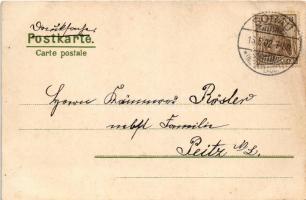 Drucksache
Postkarte.
Carte postale
Herrn Kämmerer Rösler
nebst Familie
Peitz N/L.